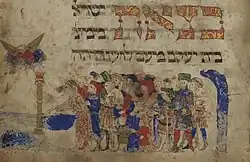 בצאת ישרא
ממצ
בית יעקב מעם לועז